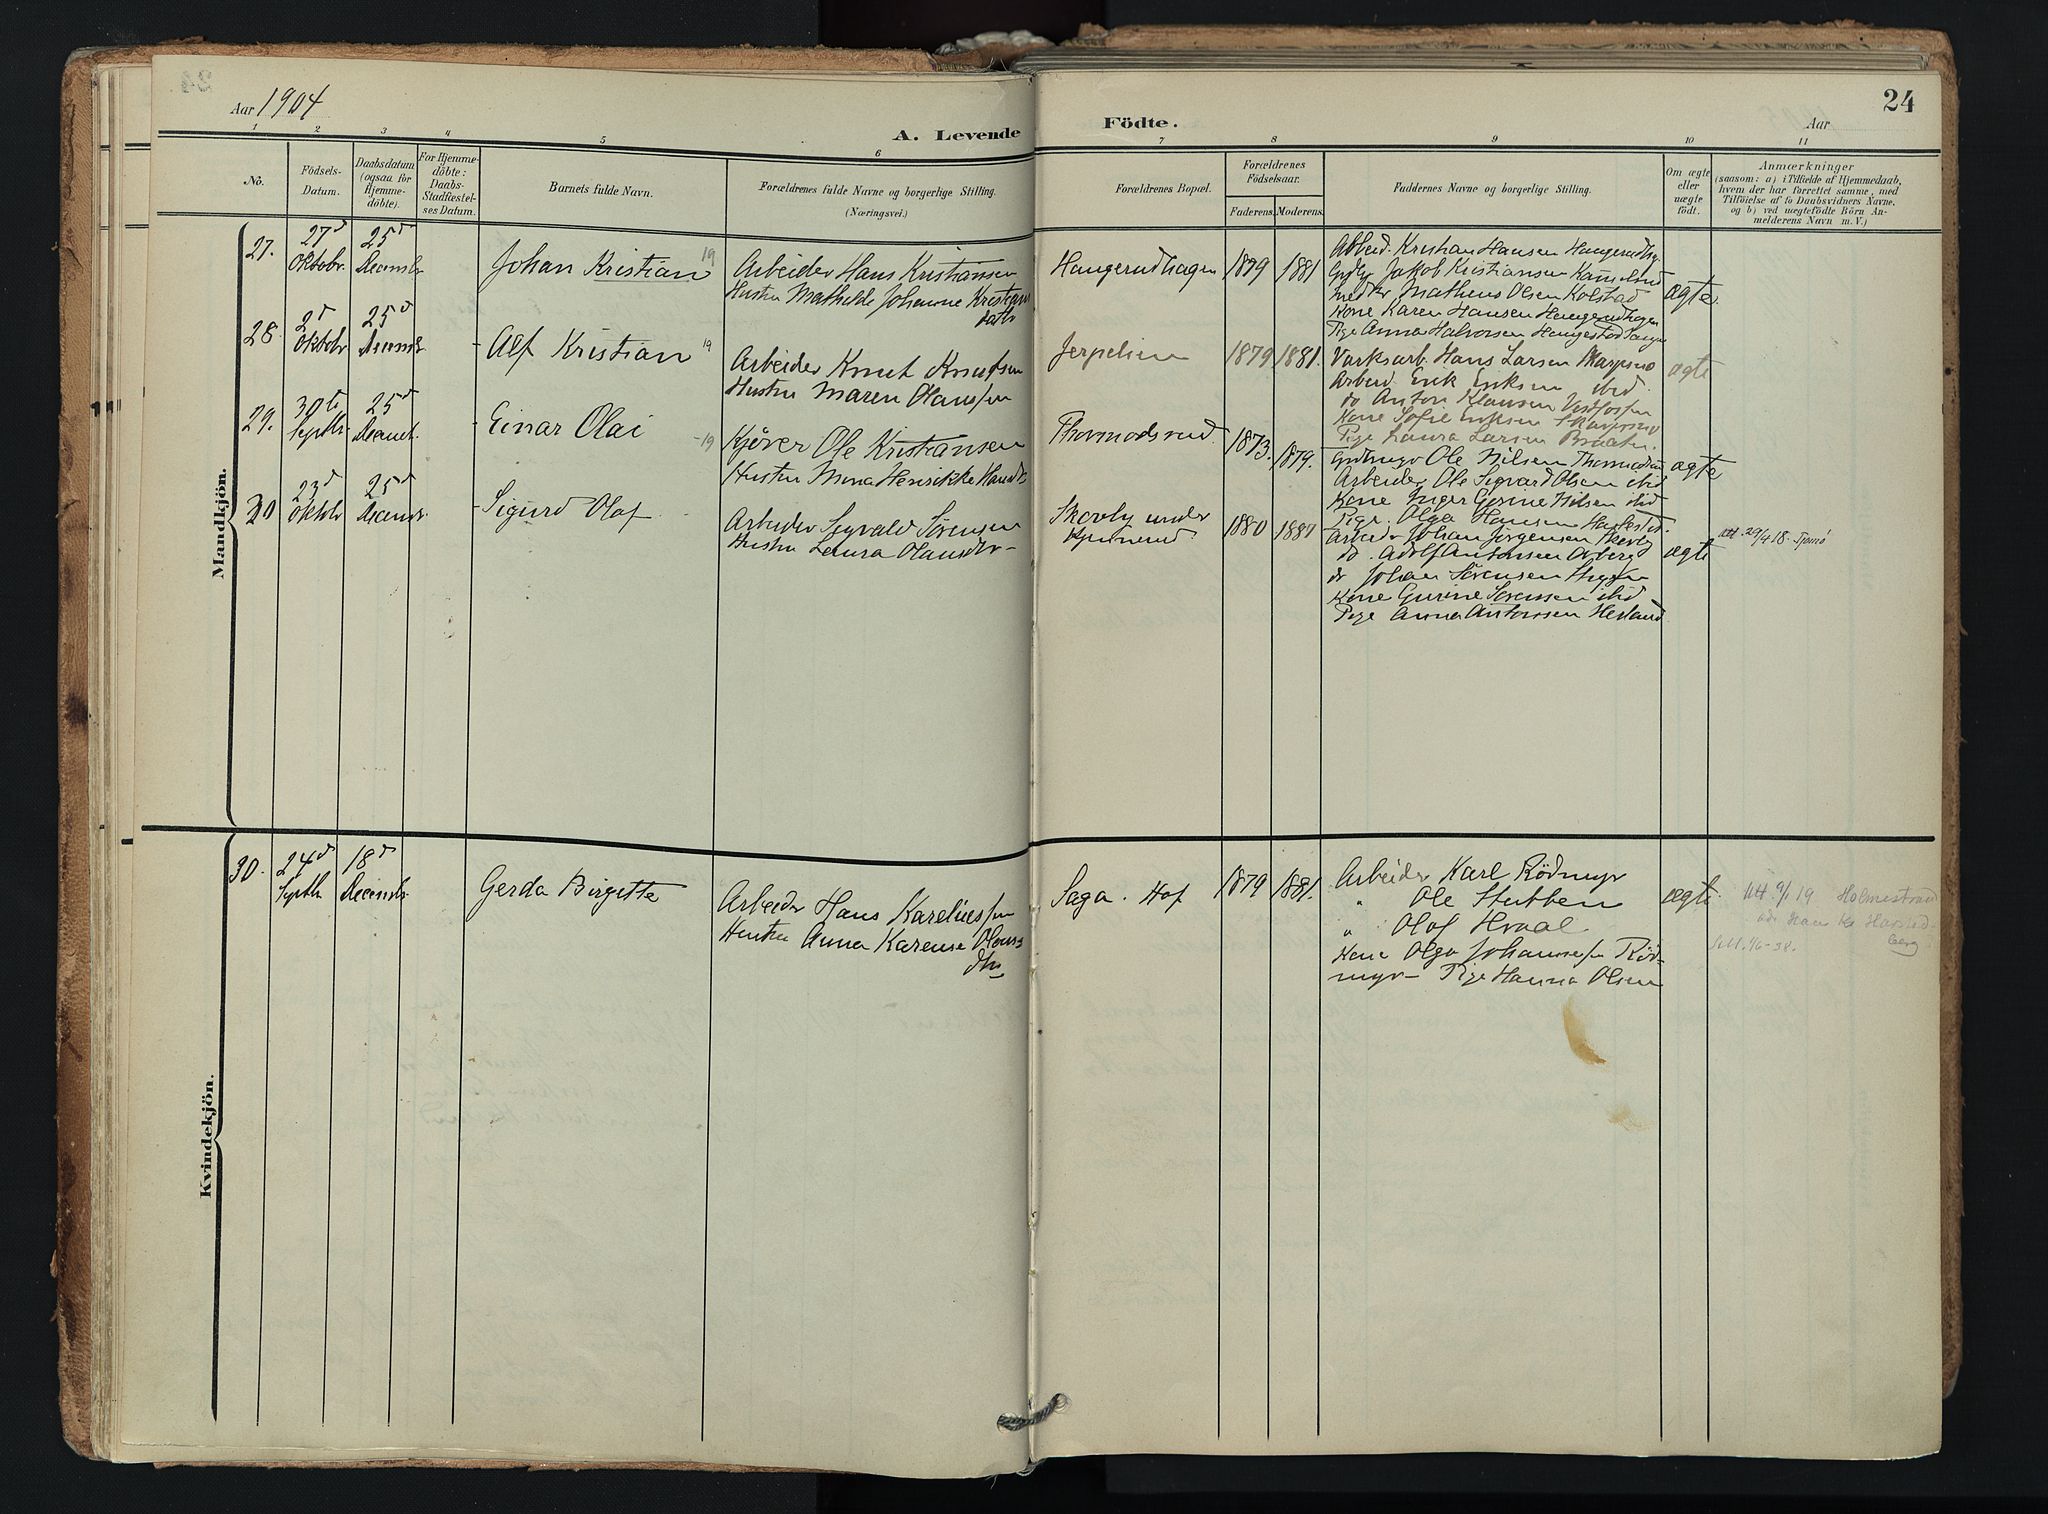 24
Aar 1904
A. Levende Födte.
Aar
1 2 3 4 5 6 7 8 9 10 11
No.
Födsels-
Datum.
Daabsdatum
(ogsaa for
Hjemme-
döbte).
For Hjemme-
döbte:
Daabs-
Stadfæstel-
ses Datum.
Barnets fulde Navn.
Forældrenes fulde Navne og borgerlige Stilling.
(Næringsvei.)
Forældrenes Bopæl.
Forældrenes
Födselsaar.
Faderens. Moderens.
Faddernes Navne og borgerlige Stilling.
Om ægte
eller
uægte
födt.
Anmærkninger
(saasom: a) i Tilfælde af Hjemmedaab,
hvem der har forrettet samme, med
Tilföielse af to Daabsvidners Navne,
og b) ved uægtefödte Börn An-
melderens Navn m. V.)
Mandkjön.
27.
27d
Oktobr.
25d
Decembr
Johan Kristian 19
Arbeider Hans Kristiansen
Hustru Mathilde Johanne Kristians
datr
Haugerudhagen
1879
1881
Arbeid. Kristian Hansen Haugerudhg.
Jakob Kristiansen
Matheus Olsen Kolstad
Kone Karen Hansen Haugerudhagen
Pige Anna Halvorsen
ægte
28.
2d
Oktobr
25d
Decembr
Alf Kristian 19
Arbeider Knut Knutsen
Hustru Maren Olaussen
Jerpelien
1879
1881.
Værksarb. Hans Larsen
Arbeid. Erik Eriksen ibid
do Anton Klausen Vestfossen
Kone Sofie Eriksen
Pige Laura Larsen Braaten.
ægte
29.
30te
Septbr
25d
Decembr.
Einar Olai 19
Kjører Ole Kristiansen
Hustru Mina Henrikke
Thormodsrud.
1873.
1879.
Ole Nilsen
Arbeider Ole Sigvard Olsen ibid
Kone Inger Gurine Nilsen ibid
Pige Olga Hansen
ægte
30
23d
Oktobr
25d
Decembr.
Sigurd Olaf
Arbeider Sigvald Sørensen
Hustru Laura Olausdtr
Skovly under
1880
1881
Arbeidr Johan Jörgensen Skovly
do. Adolf Antonsen
do Johan Sørensen
Kone Gurine Sørensen ibid
Pige Anna Antonsen
ægte
att. 29/4 18. Tjømø
Kvindekjön.
30.
24d
Septbr
18d
Decembr
Gerda Birgitte
Arbeider Hans Kareliussen
Hustru Anna Karense Olaus
dtr
Saga. Hof
1879
1881.
Arbeider Karl Rödmyr
" Ole Stubben
" Olaf Hvaal
Kone Olga Johannessen Röd-
myr Pige Hanna Olsen
ægte
att 9/1 19 Holmestrand